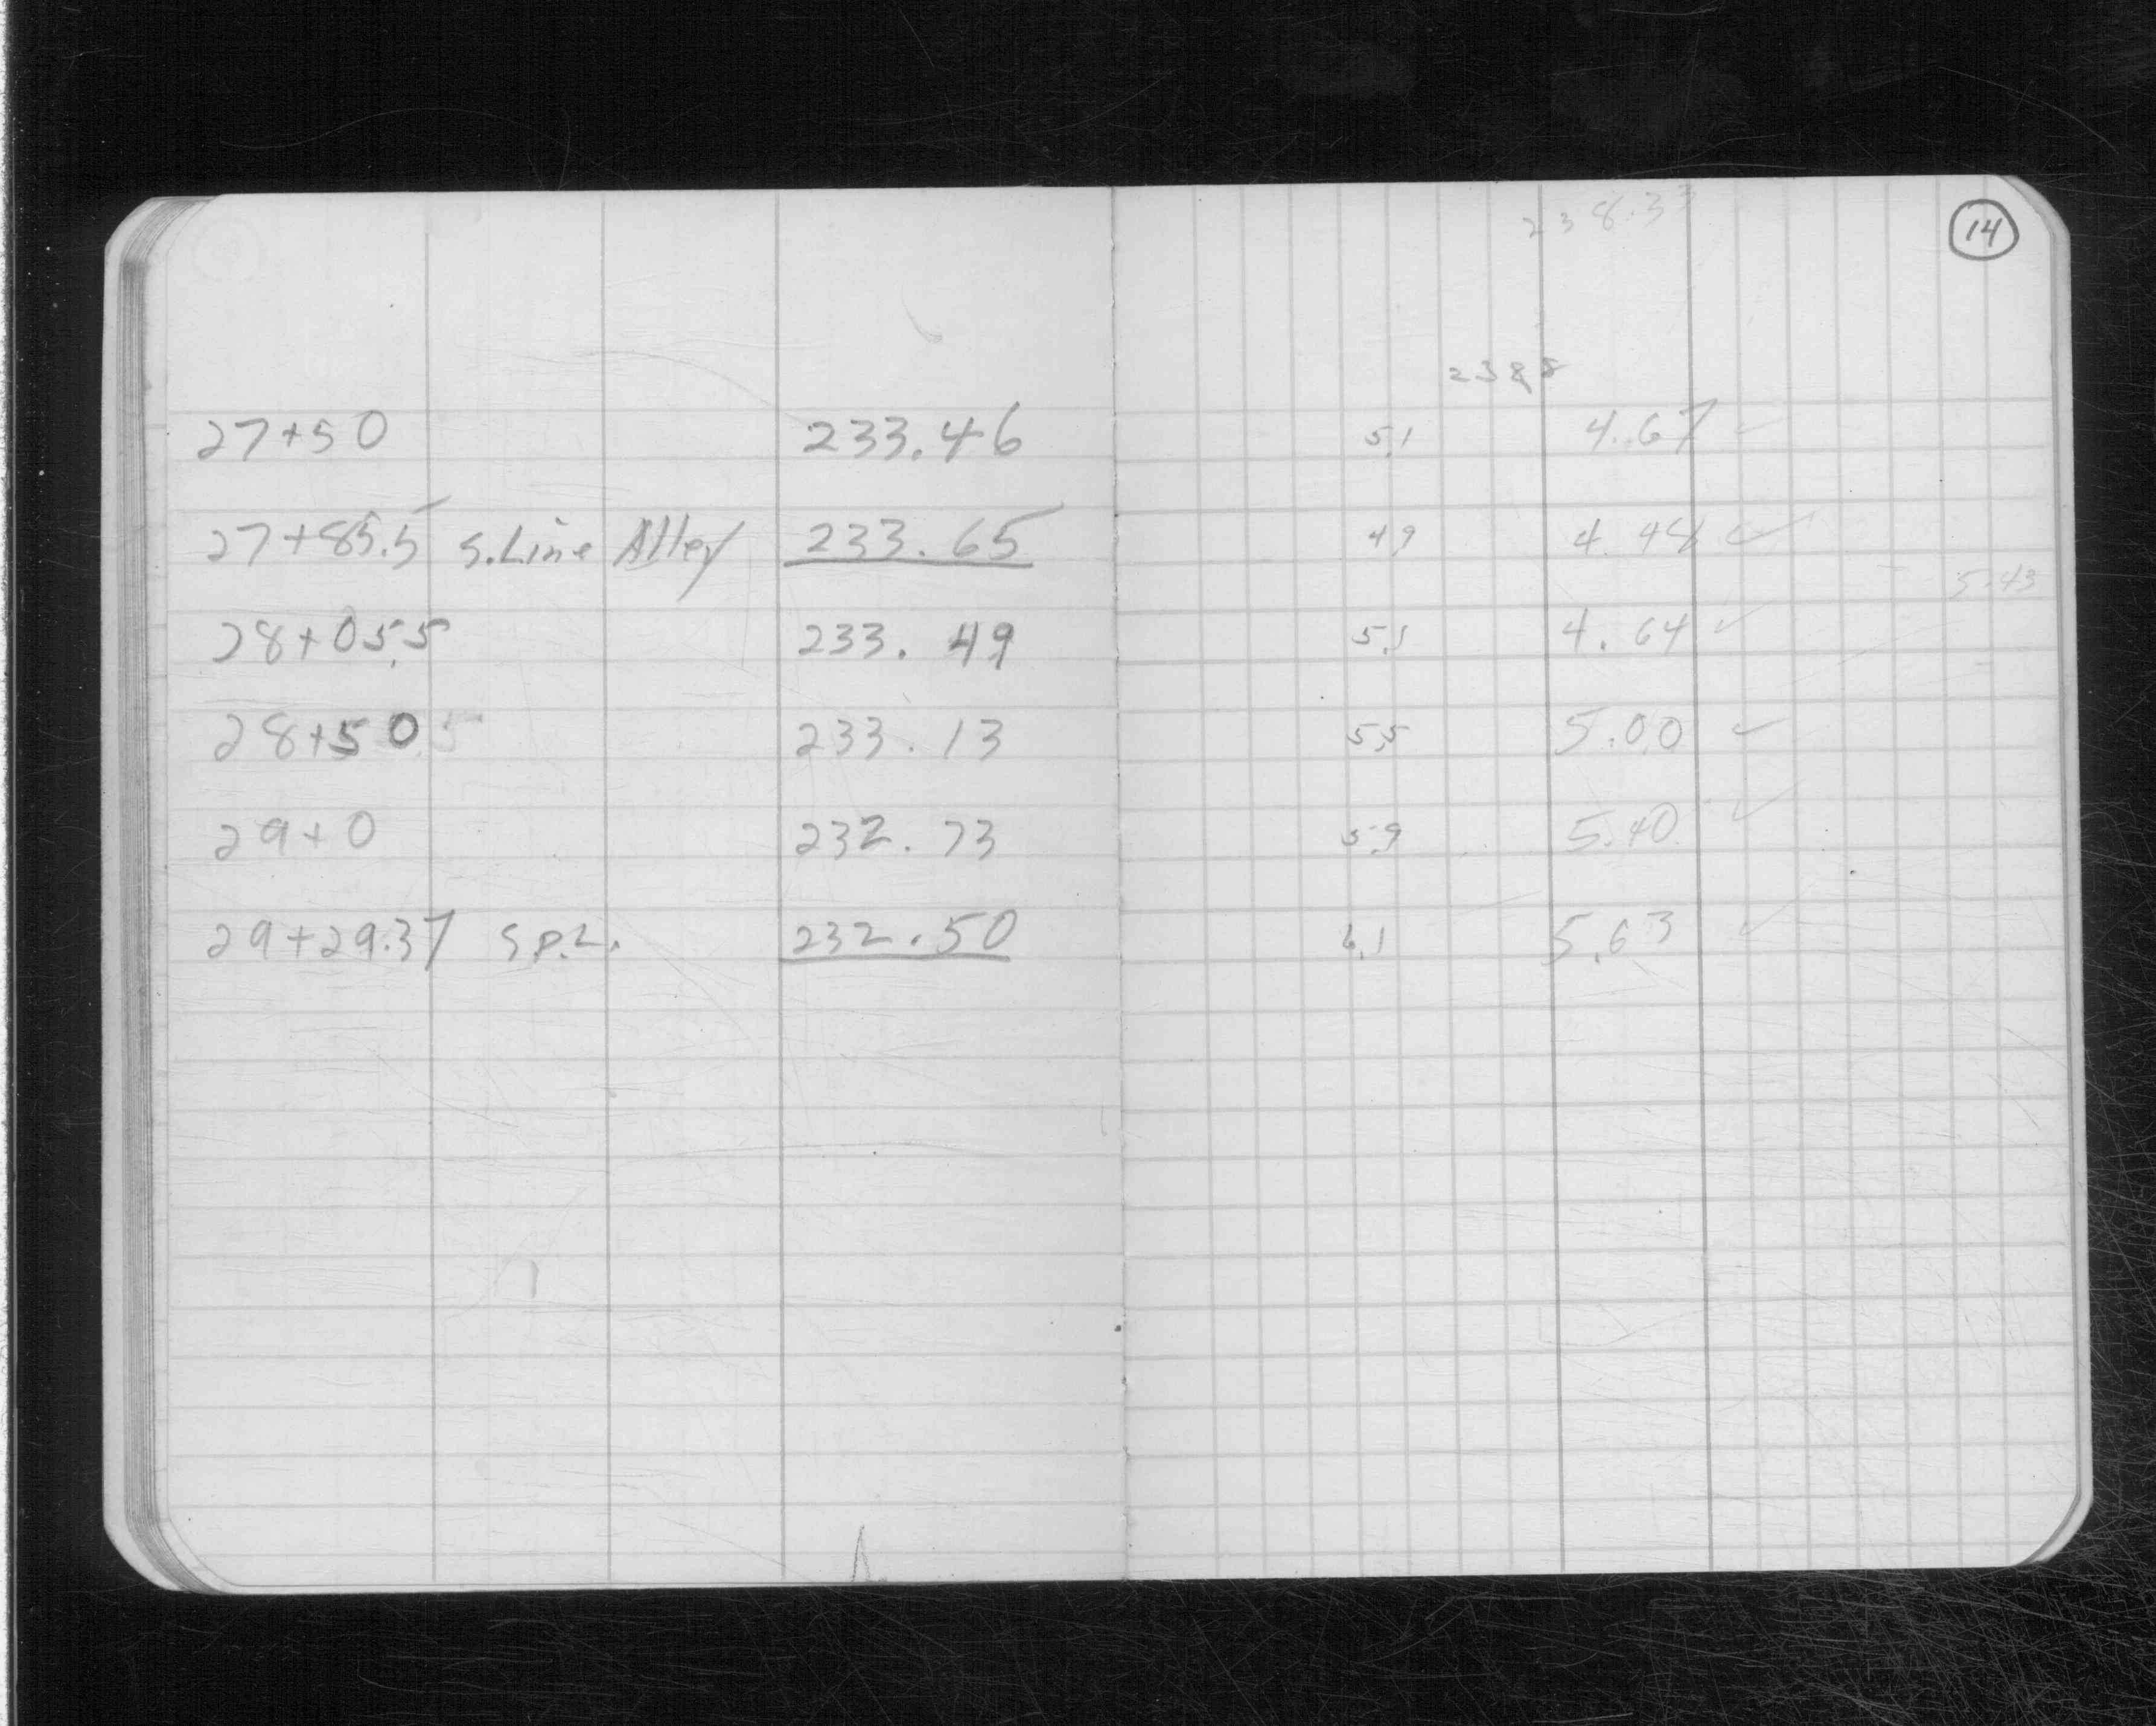 238.33
14
2388
27+50 233.46 5.1 4.67 ✓
27+85.5 S.Line Alley 233.65 4.9 4.48 ✓
5.43
28+05.5 233.49 5.1 4.64 ✓
28+50 233.13 5.5 5.00 ✓
29+0 232.73 5.9 5.40 ✓
29+29.37 S.P.L. 232.50 6.1 5.63 ✓